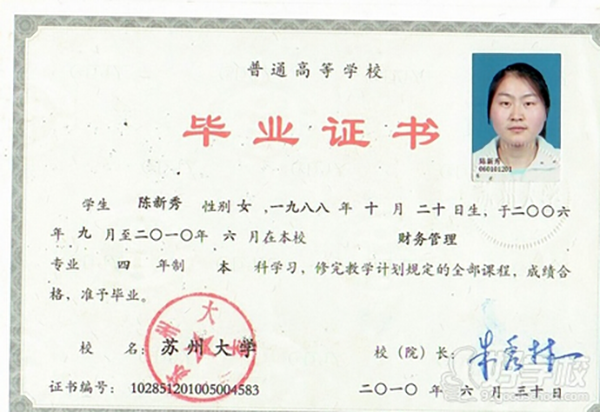 普通高等学校
毕业证书
陆新秀
060101201
学生 陈新秀 性别 女，一九八八年 十 月 二十日生，于二〇〇六
年 九 月至二〇一〇年 六 月在本校 财务管理
专业 四 年制 本 科学习，修完教学计划规定的全部课程，成绩合
格，准予毕业。
校 名：苏州大学
校（院）长：朱秀林
证书编号：102851201005004583
二〇一〇 年 六 月 三十日